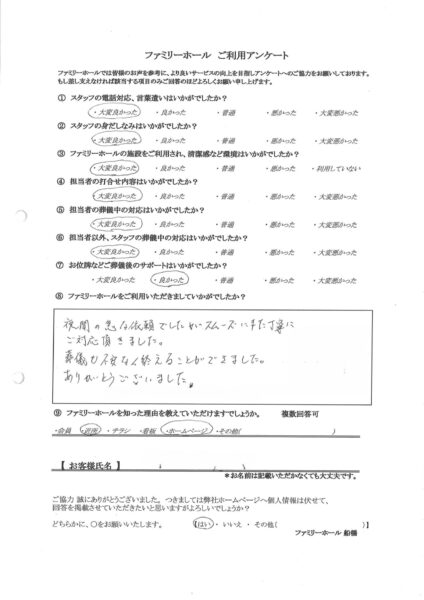 ファミリーホール　ご利用アンケート
ファミリーホールでは皆様のお声を参考に、より良いサービスの向上を目指しアンケートへのご協力をお願いしております。
もし差し支えなければ該当する項目のみご回答のほどよろしくお願い申し上げます。
① スタッフの電話対応、言葉遣いはいかがでしたか？
・大変良かった ・良かった ・普通 ・悪かった ・大変悪かった
② スタッフの身だしなみはいかがでしたか？
・大変良かった ・良かった ・普通 ・悪かった ・大変悪かった
③ ファミリーホールの施設をご利用され、清潔感など環境はいかがでしたか？
・大変良かった ・良かった ・普通 ・悪かった ・利用していない
④ 担当者の打合せ内容はいかがでしたか？
・大変良かった ・良かった ・普通 ・悪かった ・大変悪かった
⑤ 担当者の葬儀中の対応はいかがでしたか？
・大変良かった ・良かった ・普通 ・悪かった ・大変悪かった
⑥ 担当者以外、スタッフの葬儀中の対応はいかがでしたか？
・大変良かった ・良かった ・普通 ・悪かった ・大変悪かった
⑦ お位牌などご葬儀後のサポートはいかがでしたか？
・大変良かった ・良かった ・普通 ・悪かった ・大変悪かった
⑧ ファミリーホールをご利用いただきましていかがでしたか？
夜間の急な依頼でしたがスムーズにまた丁寧に
ご対応頂きました。
葬儀も不安なく終えることができました。
ありがとうございました。
⑨ ファミリーホールを知った理由を教えていただけますでしょうか。　複数回答可
・会員 ・近所 ・チラシ ・看板 ・ホームページ ・その他( )
【 お客様氏名 】
＊お名前は記載いただかなくても大丈夫です。
ご協力 誠にありがとうございました。 つきましては弊社ホームページへ個人情報は伏せて、
回答を掲載させていただきたいと思いますがよろしいでしょうか？
どちらかに、○をお願いいたします。 【はい ・ いいえ ・ その他( )】
ファミリーホール 船橋